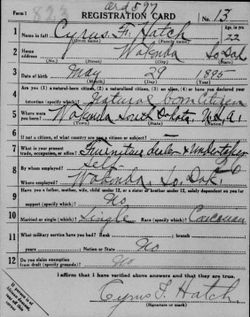 Form 1
REGISTRATION CARD
No. 13
1 Name in full Cyrus F. Hatch
Age, in yrs. 22
2 Home address Wakonda So Dak
3 Date of birth May 29 1895
4 Are you (1) a natural-born citizen, (2) a naturalized citizen, (3) an alien, (4) or have you declared your intention (specify which)? Natural born Citizen
5 Where were you born? Wakonda South Dakota U.S.A.
6 If not a citizen, of what country are you a citizen or subject?
7 What is your present trade, occupation, or office? Furniture dealer & Undertaker
8 By whom employed? Self
Where employed? Wakonda, So. Dak.
9 Have you a father, mother, wife, child under 12, or a sister or brother under 12, solely dependent on you for support (specify which)? No
10 Married or single (which)? Single Race (specify which)? Caucasian
11 What military service have you had? Rank
branch
years Nation or State No
12 Do you claim exemption from draft (specify grounds)? No
I affirm that I have verified above answers and that they are true.
Cyrus F. Hatch
(Signature or mark)